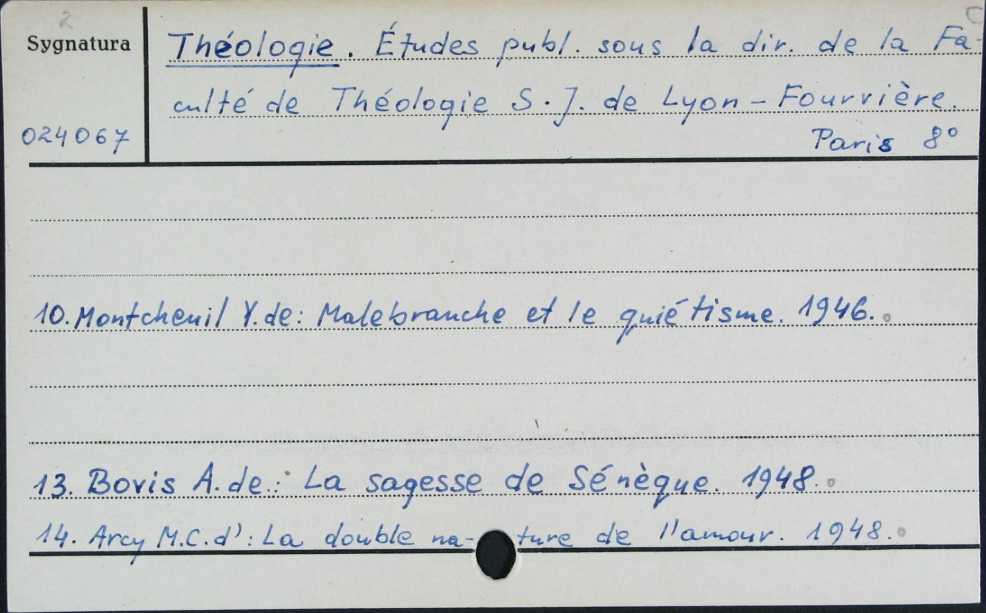 2
Sygnatura
Théologie. Études publ. sous la dir. de la Fa-
culté de Théologie S.J. de Lyon – Fourvière.
024067
Paris 8°
10. Montcheuil Y. de: Malebranche et le quiétisme. 1946.
13. Bovis A. de: La sagesse de Sénèque. 1948.
14. Arcy M.C. d': La double na- ture de l'amour. 1948.